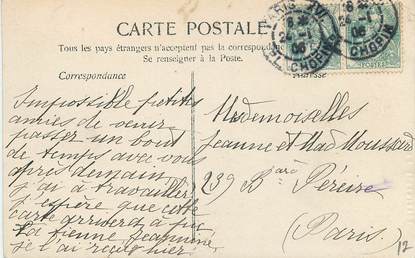 CARTE POSTALE
Tous les pays étrangers n'acceptent pas la correspondance
Se renseigner à la Poste.
Correspondance
Adresse
Impossible petites
amies de venir
passer un bout
de temps avec vous
après demain,
j'ai à travailler.
J'espère que cette
carte arrivera à
La tienne, Jeanne,
je l'ai reçue hier
Mesdemoiselles
Jeanne et Mad Moussard
239 Bard Péreire
(Paris)
PARIS XVII
6
06
Pl. CHOPIN
CHOPIN
POSTES
12